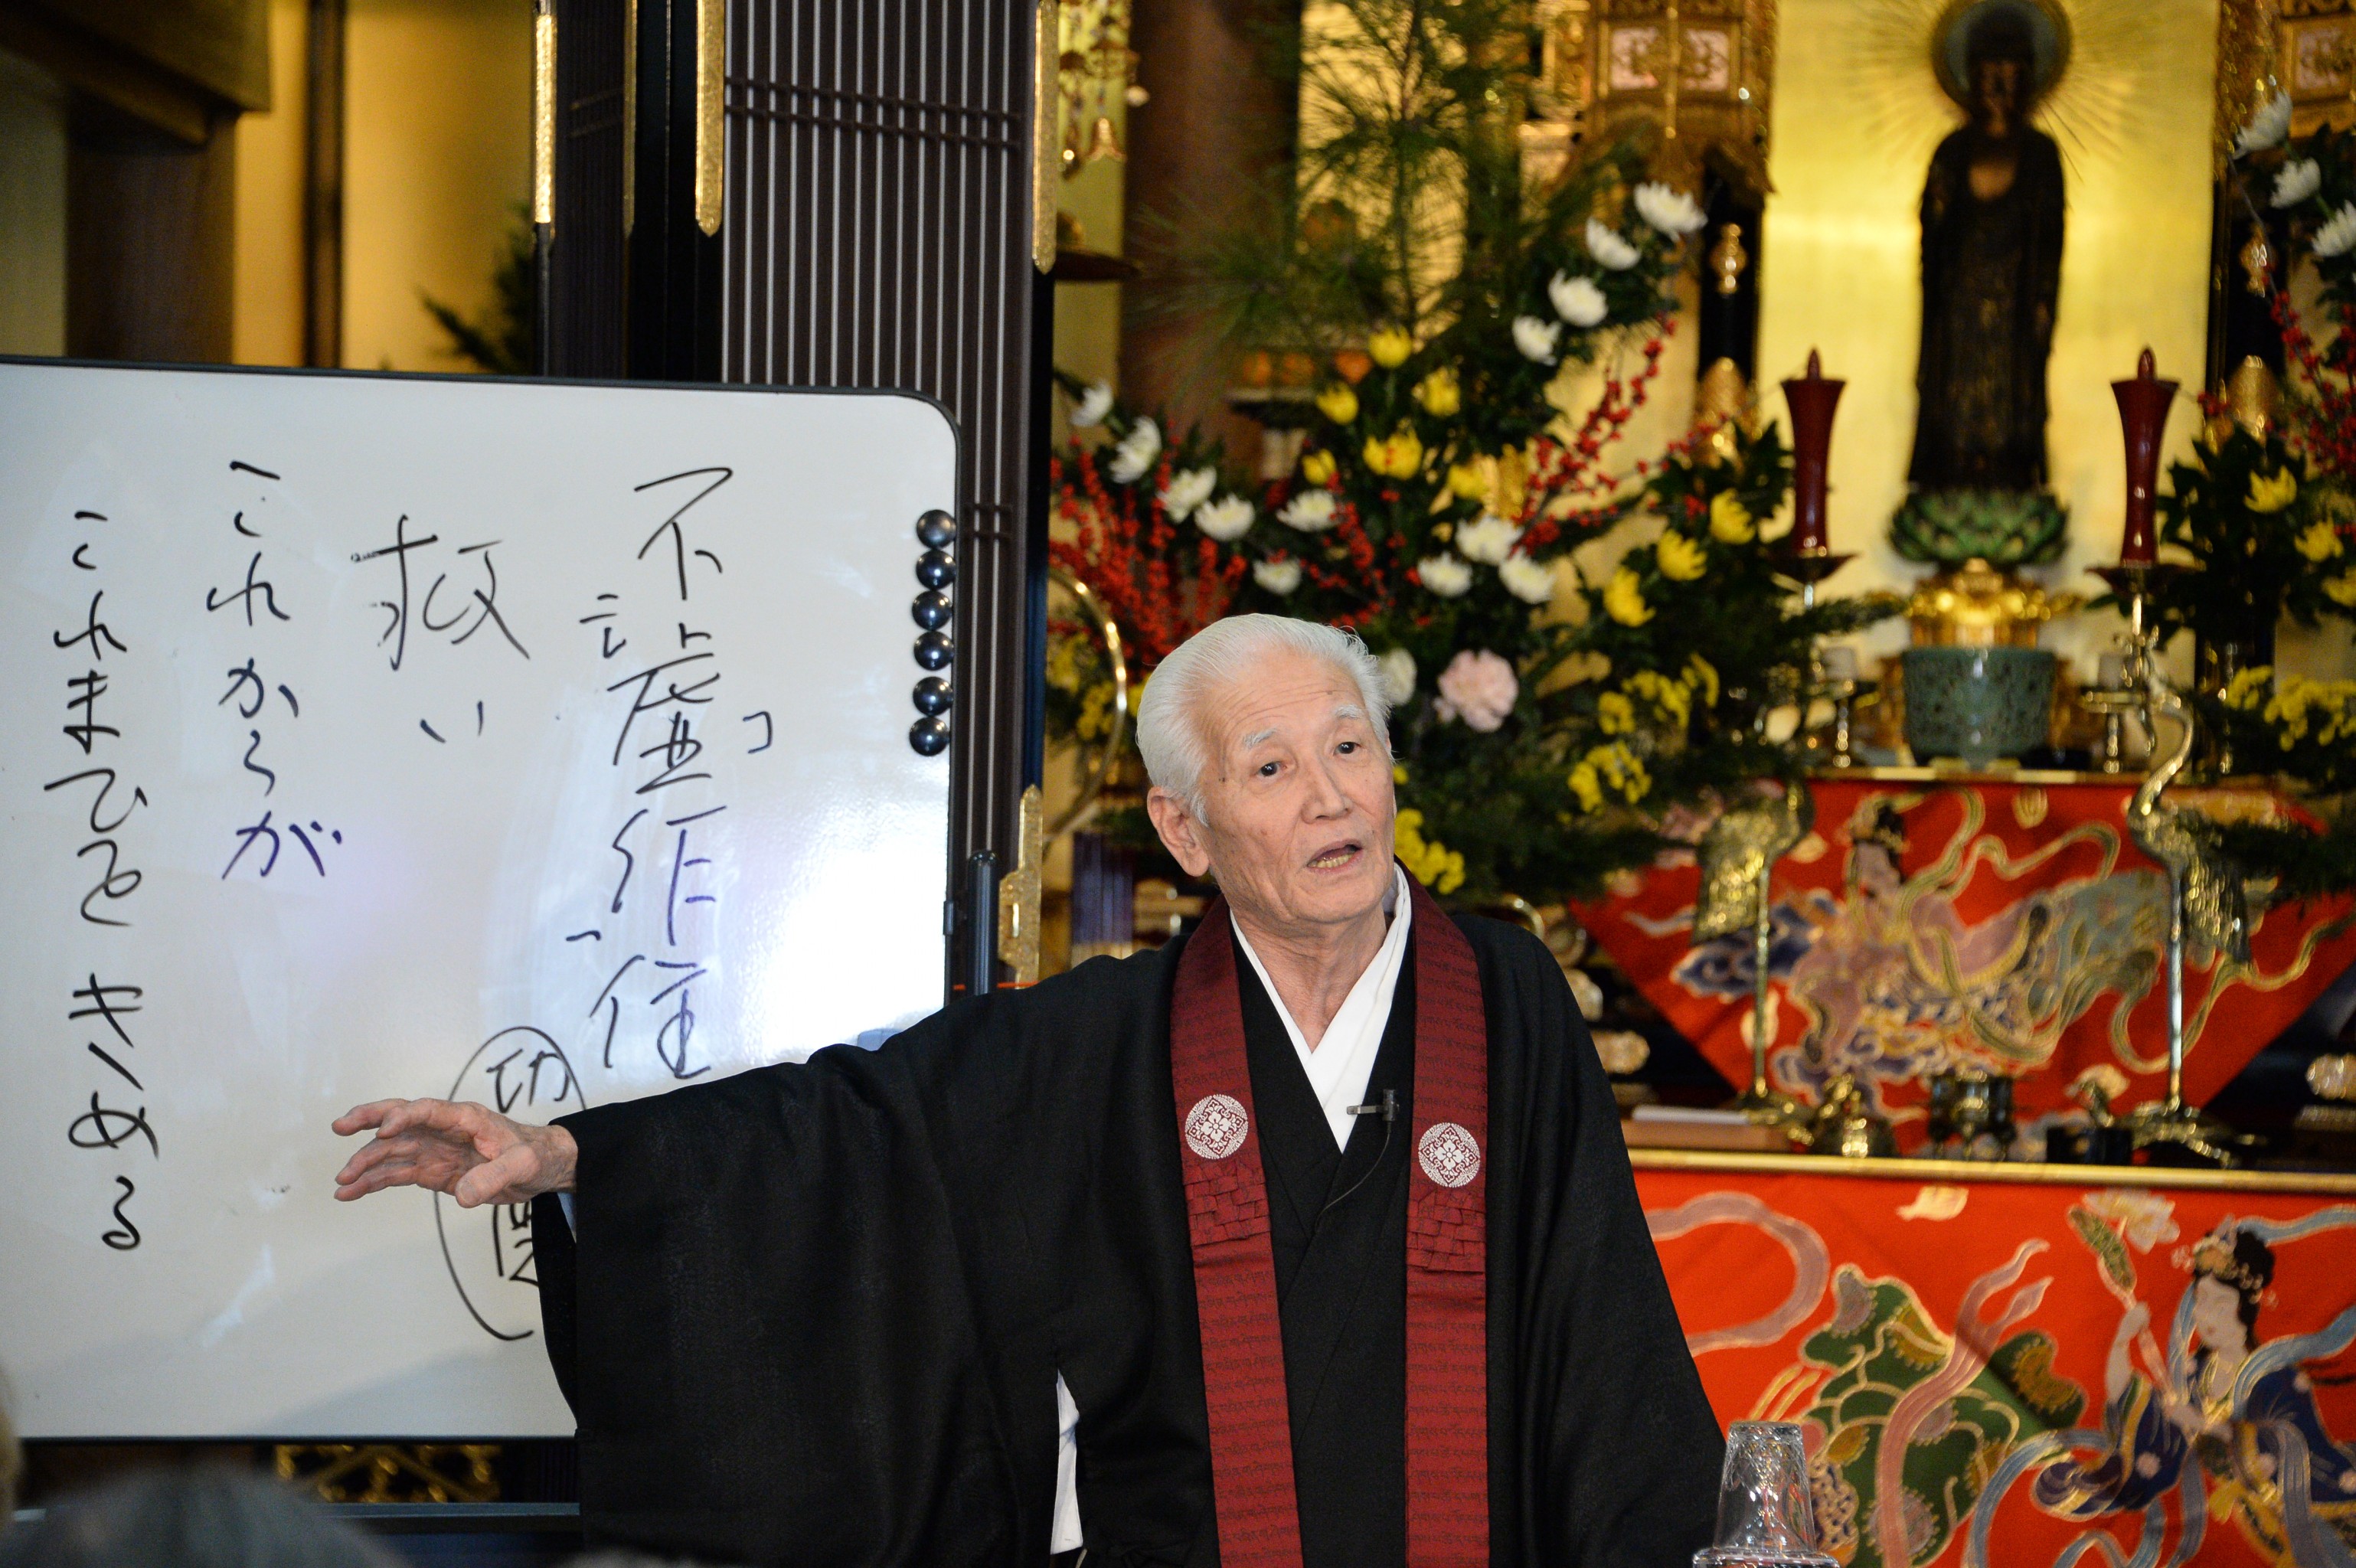 不虚作住
救い
これからが
これまでを きめる